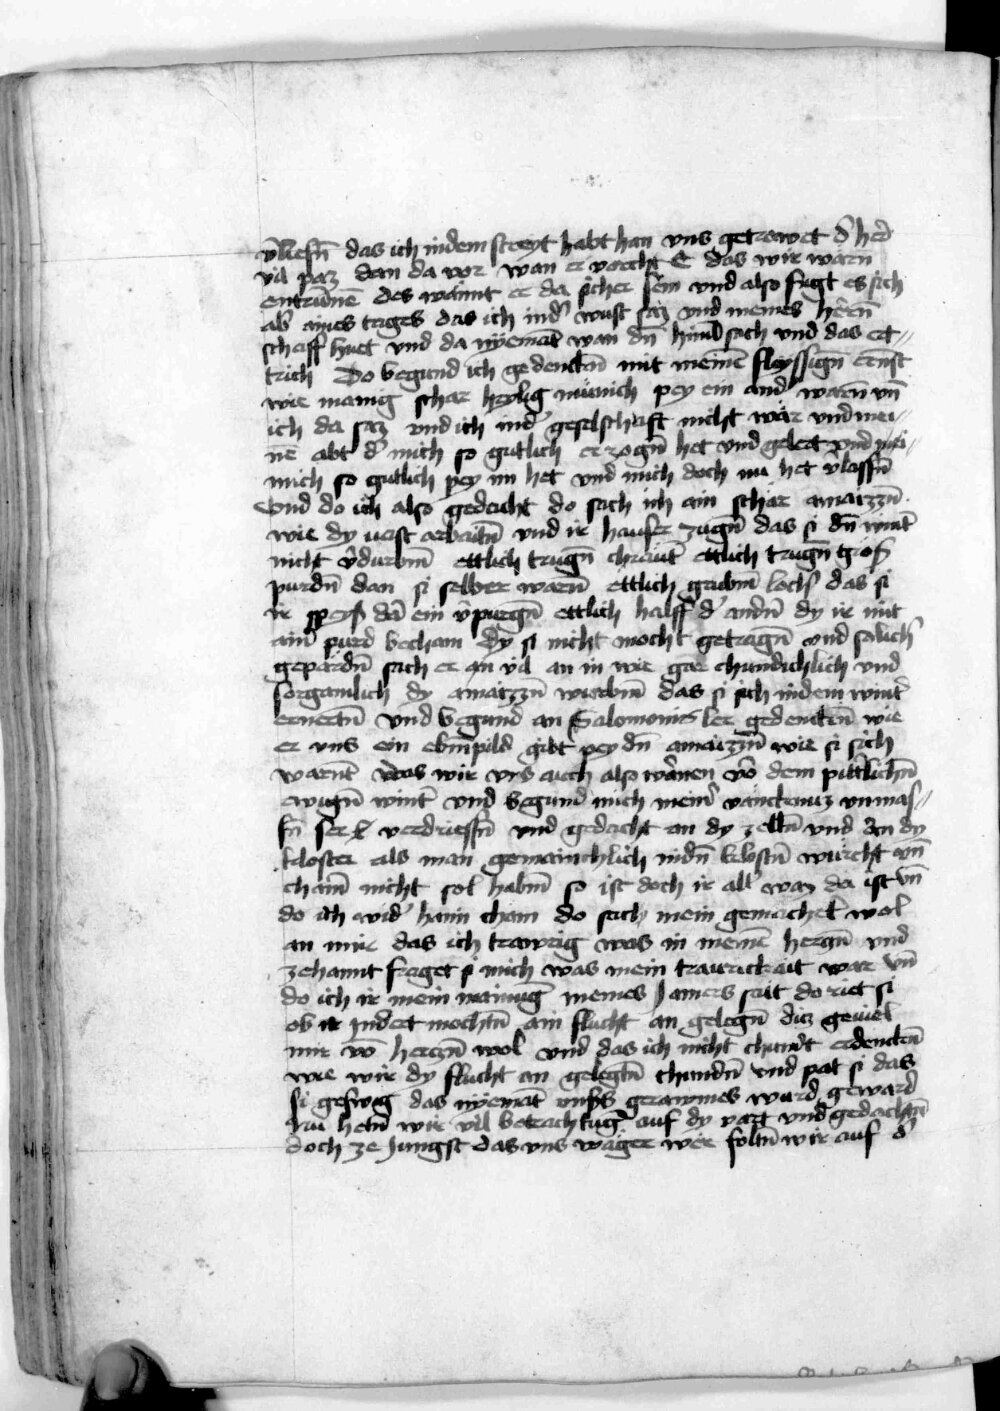 v̄liesn̄ das ich in dem streyt habt han vns getrawet d' her̄
vil paz dan da vor wan er vorcht E das wir warn
entrūnē des wannt er da sicher sein vnd also fugt es sich
ab' aines tages das ich in d' wust saz vnd meines her̄n̄
schaff huet vnd da nÿemāt wan dn̄ himl sach vnd das ert-
rich Do begund ich gedenckn̄ mit meinē fleyssign̄ ernst
wie manig schar heylig münich pey ein and' warn̄ vn̄
ich da saz vnd ich in d' geselschafft nicht wär vnd mei-
nē abt d' mich so gutlich erzogn̄ het vnd gelert vnd
mich so gutlich pey im het vnd mich doch nu het v̄lassn̄
Vnd do ich also gedacht do sach ich ain schar amaizzn̄
wie dy vast arbaitn̄ vnd ir haufn̄ zugn̄ das si dn̄ wint'
nicht v̄durbm̄ ettlich trugn̄ chrāut ettlich trugn̄ gros
purdn̄ dan si selber warn̄ ettlich grubm̄ loch' das si
ir speys dā ein v̄purgn̄ ettlich halff d' andn̄ dy ir mit
ainr purd becham dy si nicht mocht getragn̄ vnd sōlich'
gepārdn̄ sach er an vil an in wie gar chundichlich vnd
sorgsamlich dy amaizzn̄ wurbm̄ das si sich in dem wint'
ernertn̄ vnd begund an Salomonis ler gedenckn̄ wie
er vns ein ebm̄pild gibt pey dn̄ amaizzn̄ wie si sich
warnt das wir vns auch also warnen vō dem pittlichn̄
ewign̄ wint' vnd begund mich mein' vancknuz vnmas-
sn̄ ser verdriessn̄ vnd gedacht an dy zelln̄ vnd an dy
kloster als man gemainchlich in dn̄ klostn̄ würcht vn̄
chainr nicht sol habm̄ so ist doch ir all' waz da ist vn̄
do ich wid' haim cham do sach mein gemachel wol
an mir das ich trawrig was in meinē herczn̄ vnd
zehannt fraget si mich was mein traurickait war vn̄
do ich ir mein mainūg meines jamers sait do riet si
ob ir indert mochtn̄ ain flucht an gelegn̄ diz geviel
mir vō herczn̄ wol vnd das ich nicht chund't erdenckn̄
wie wir dy flucht an gelegtn̄ chundn̄ vnd pat si das
si geswig das nyemāt vns's gerawmes wurd geward
Nu hetn̄ wir vil betrachtūg auf dy vart vnd gedachtn̄
doch ze Jungst das vns wäger wēr soltn̄ wir auf d'